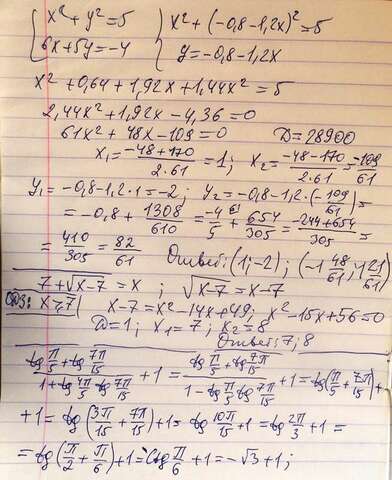 { x² + y² = 5 { x² + (-0,8-1,2x)² = 5
6x + 5y = -4 y = -0,8-1,2x
x² + 0,64 + 1,92x + 1,44x² = 5
2,44x² + 1,92x - 4,36 = 0
61x² + 48x - 109 = 0 D = 28900
x₁ = (-48+170)/(2·61) = 1; x₂ = (-48-170)/(2·61) = -109/61
y₁ = -0,8-1,2·1 = -2; y₂ = -0,8-1,2·(-109/61) =
= -0,8 + 1308/610 = -4/5 + 654/305 = (-244+654)/305 =
= 410/305 = 82/61 Ответ: (1;-2); (-1 48/61; 1 21/61)
7 + √(x-7) = x ; √(x-7) = x-7
ОДЗ: x ≥ 7 x-7 = x²-14x+49; x²-15x+56=0
D=1; x₁=7; x₂=8
Ответ: 7; 8
(tg π/5 + tg 7π/15)/(1 + tg 4π/5 tg 7π/15) + 1 = (tg π/5 + tg 7π/15)/(1 - tg π/5 tg 7π/15) + 1 = tg(π/5 + 7π/15) +
+ 1 = tg(3π/15 + 7π/15) + 1 = tg 10π/15 + 1 = tg 2π/3 + 1 =
= tg(π/2 + π/6) + 1 = -ctg π/6 + 1 = -√3 + 1;